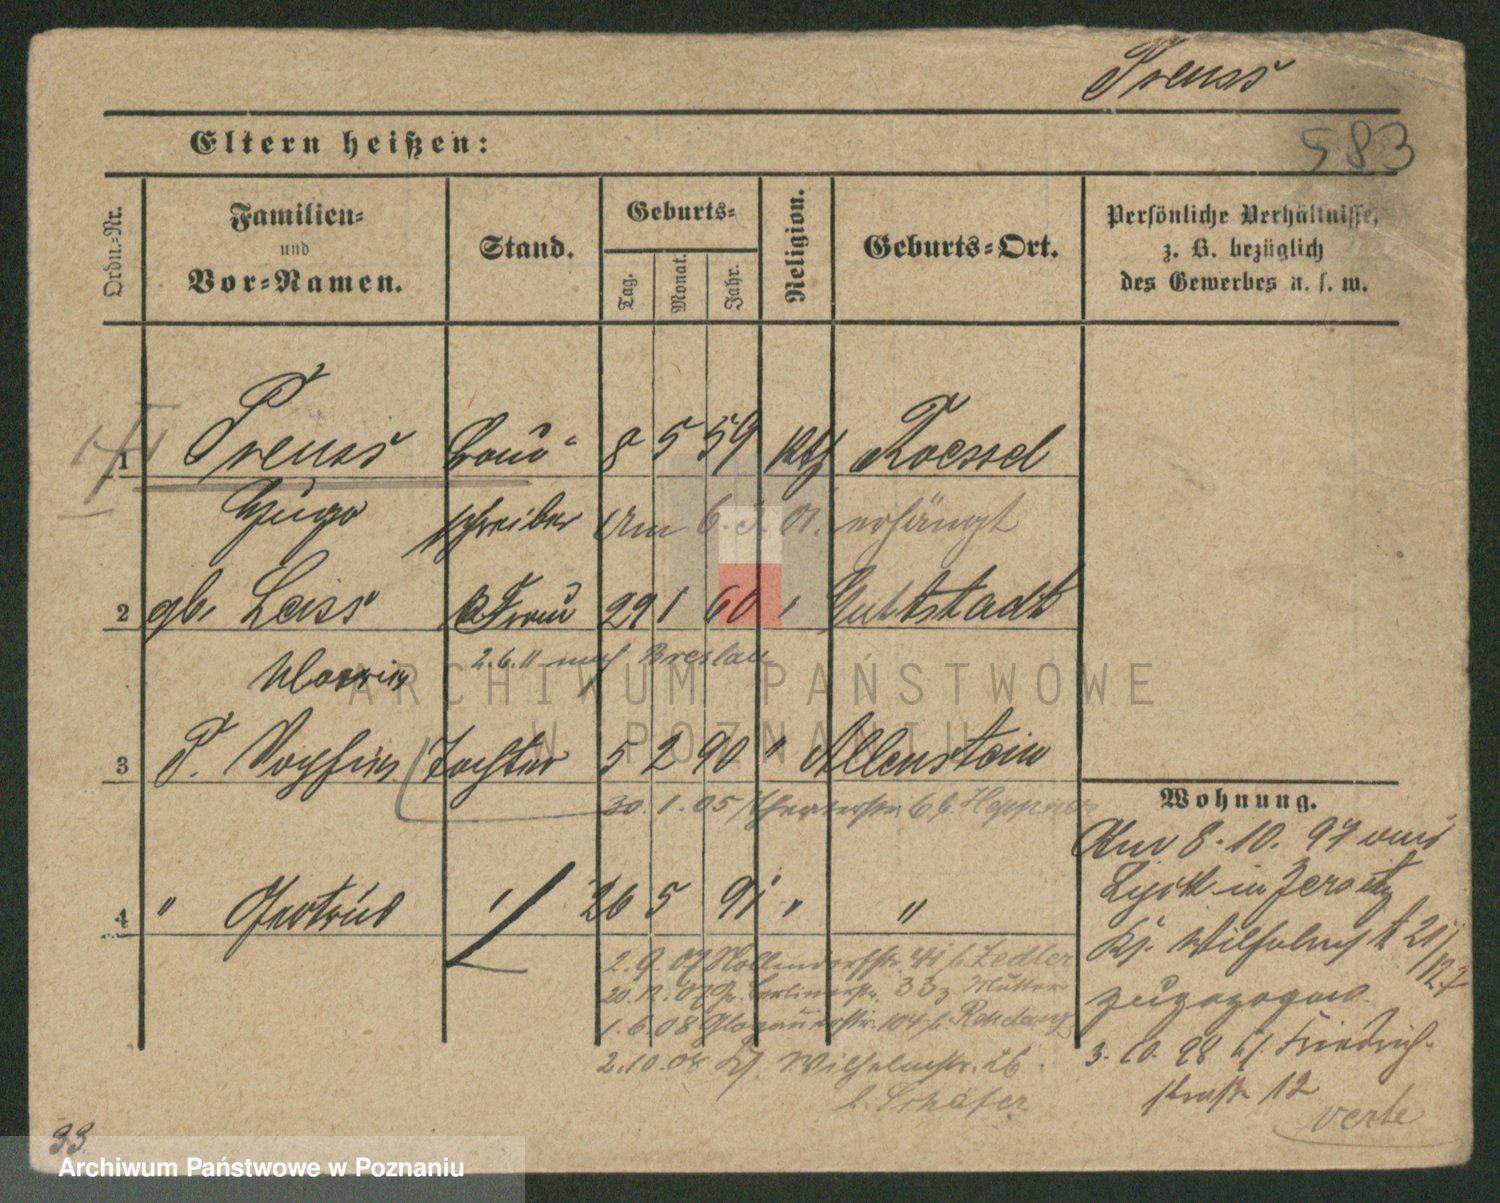 Preuss
583
Eltern heißen:
Ordn.-Nr.
Familien-
und
Vor-Namen.
Stand.
Geburts-
Tag.
Monat.
Jahr.
Religion.
Geburts-Ort.
Persönliche Verhältnisse,
z. B. bezüglich
des Gewerbes u. s. w.
1 Preuss 8 5 59 Roessel
Hugo schreiber Am 6. 01. erhängt
2 gb. Leiss Frau 29 1 60 " Guttstadt
2.6.11 nach Breslau
ARCHIWUM PAŃSTWOWE
W POZNANIU
3 P. Sophie Tochter 5 2 90 " Allenstein
30. 1. 05 Theaterstr. 6 b. Heppner
4 " Gertrud " 26 5 91 " "
2. 9. 07 b. Zedler
20. 12. 07 Gr. Berlinerstr. 33 z. Mutter
1. 6. 08 Glogauerstr. 104 b.
2. 10. 08 Ks. Wilhelmstr. 26.
b. Schäfer
Wohnung.
Am 8. 10. 97 aus
Lyck in Jersitz
Ks. Wilhelmstr 21
zugezogen.
3. 10. 98 Ks. Friedrich-
straße 12
verte
33.
Archiwum Państwowe w Poznaniu